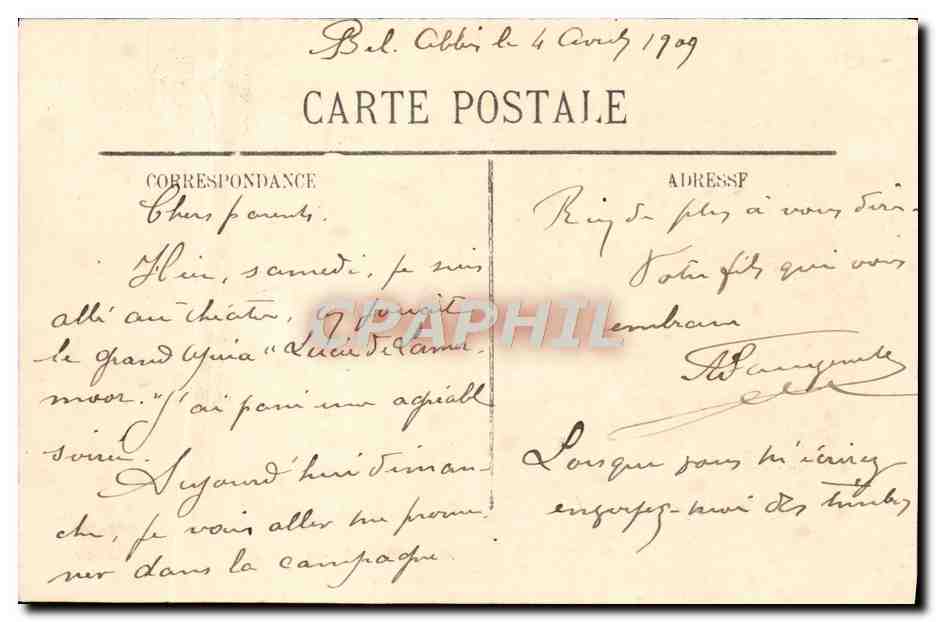 Bel. Abbès le 4 Avril 1909
CARTE POSTALE
CORRESPONDANCE
Chers parents.
Hier, samedi, je suis
allé au théâtre, on jouait
le grand opéra "Lucie de Lamer-
moor." J'ai passé une agréable
soirée.
Aujourd'hui diman-
che, je vais aller me prome-
ner dans la campagne.
ADRESSE
Rien de plus à vous dire.
Votre fils qui vous
embrasse
Lorsque vous m'écrirez
envoyez-moi des timbres
CPAPHIL